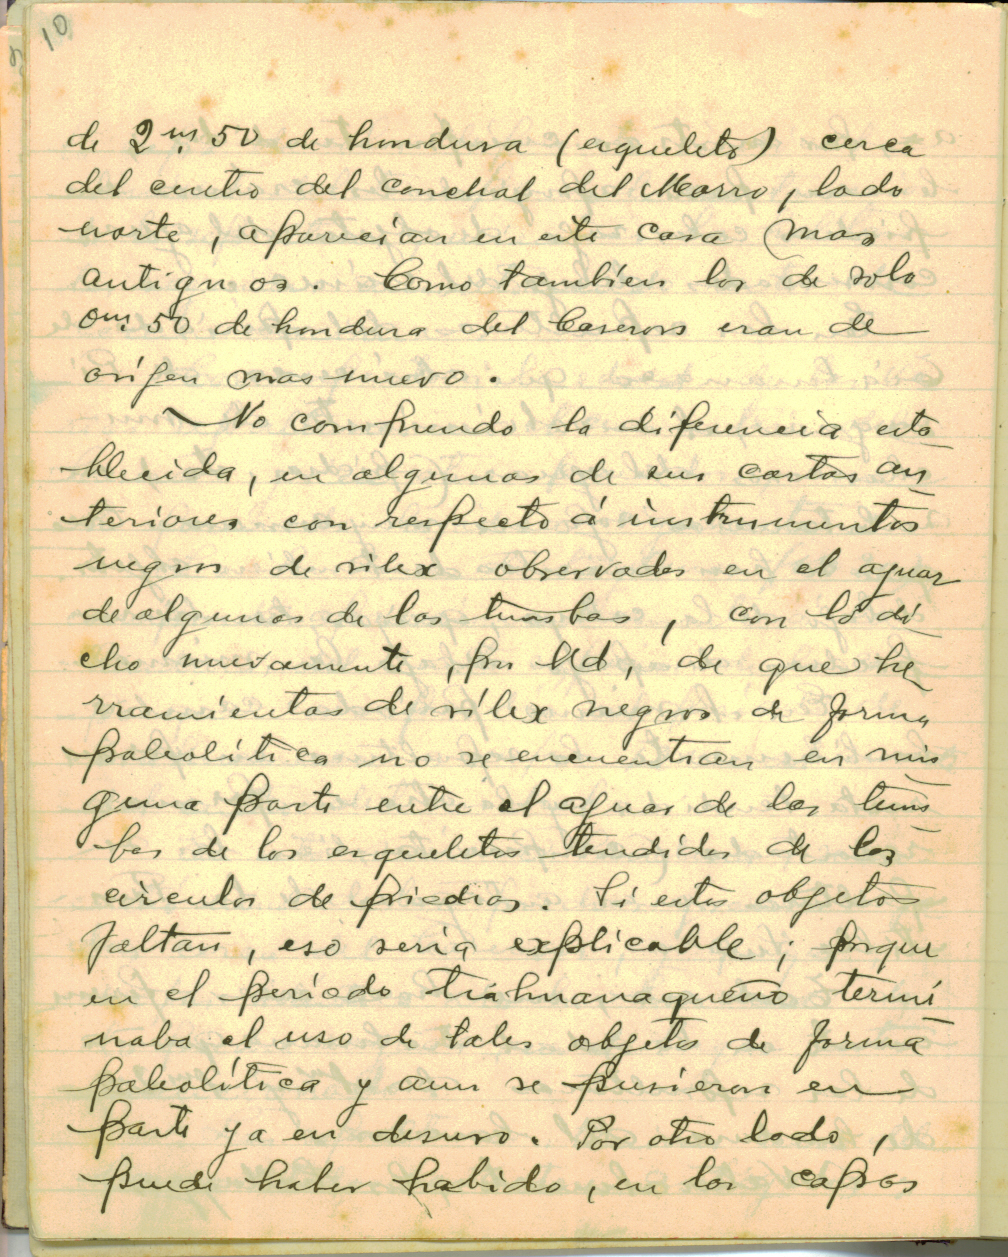 10
de 2 ms. 50 de hondura (esqueleto) cerca
del centro del conchal del Morro, lado
norte, aparecian en este caso (mas
antiguos. Como tambíen los de solo
0m. 50 de hondura del Caserons eran de
orígen mas nuevo.
No comprendo la diferencia esta
blecida, en algunas de sus cartas an
teriores con respecto á instrumentos
negros de silex observados en el ajuar
de algunas de las tumbas, con lo di
cho nuevamente, por Ud, de que he
rramientas de sílex negros de forma
paleolítica no se encuentran en nin
guna parte entre el ajuar de las tum
bas de los esqueletos tendidos de los
circulos de piedras. Si estos objetos
faltan, eso sería explicable; porque
en el periodo tiahuanaqueño termi
naba el uso de tales objetos de forma
paleolítica y aun se pusieron en
parte ya en desuso. Por otro lado,
puede haber habido, en los capos